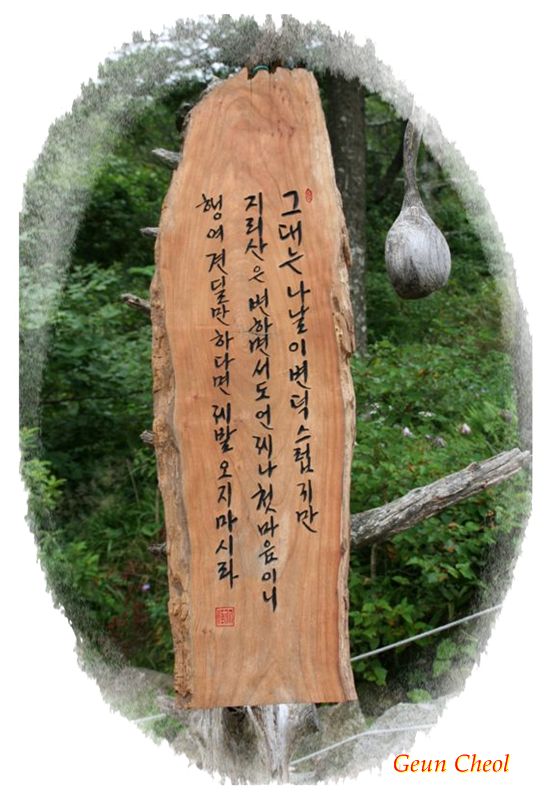 그대는 나날이 변덕스럽지만
지리산은 변하면서도 언제나 첫 마음이니
행여 견딜만 하다면 제발 오지 마시라
Geun Cheol